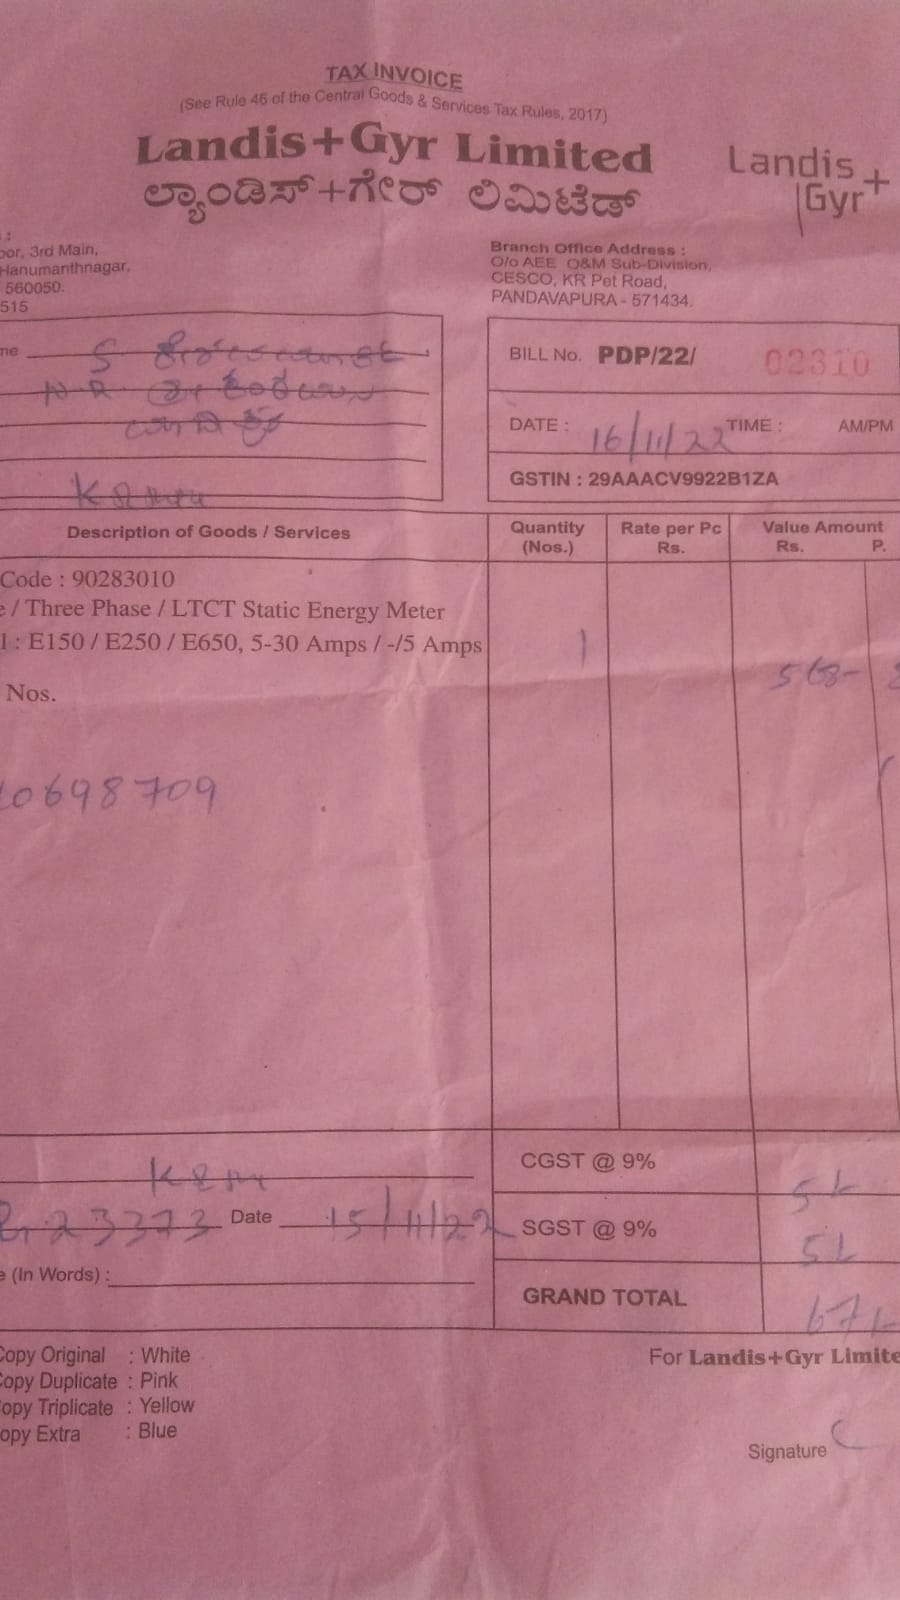 TAX INVOICE
(See Rule 46 of the Central Goods & Services Tax Rules, 2017)
Landis+Gyr Limited
ಲ್ಯಾಂಡಿಸ್+ಗೇರ್ ಲಿಮಿಟೆಡ್
Landis+
Gyr
:
oor, 3rd Main,
Hanumanthnagar,
560050.
515
Branch Office Address :
O/o AEE O&M Sub-Division,
CESCO, KR Pet Road,
PANDAVAPURA - 571434.
me S
N.R.
BILL No. PDP/22/ 02310
DATE : 16/11/22 TIME : AM/PM
GSTIN : 29AAACV9922B1ZA
Description of Goods / Services
Quantity (Nos.)
Rate per Pc Rs.
Value Amount Rs. P.
Code : 90283010
e / Three Phase / LTCT Static Energy Meter
l : E150 / E250 / E650, 5-30 Amps / -/5 Amps
1
568-
Nos.
10698709
CGST @ 9%
23373 Date 15/11/22
SGST @ 9%
e (In Words) :
GRAND TOTAL
Copy Original : White
Copy Duplicate : Pink
Copy Triplicate : Yellow
opy Extra : Blue
For Landis+Gyr Limite
Signature